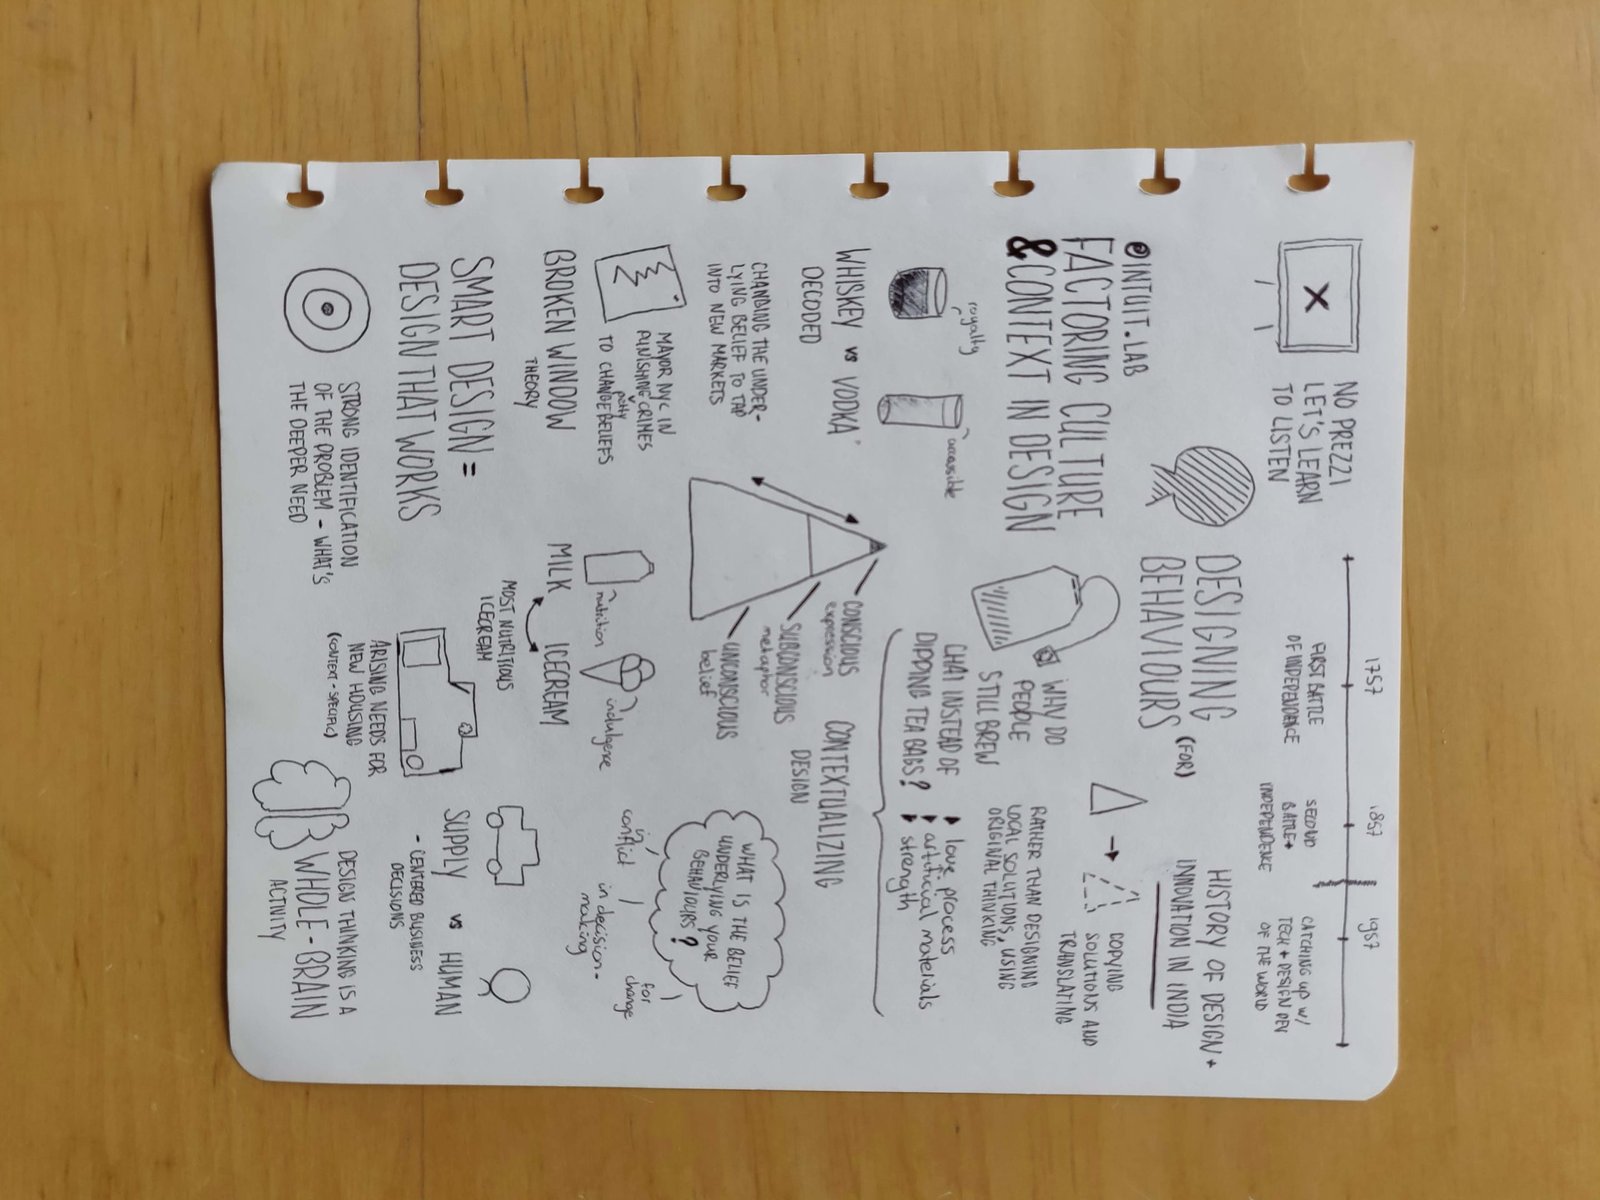 NO PREZZI
LET'S LEARN
TO LISTEN
1757
1857
1957
FIRST BATTLE
OF INDEPENDENCE
SECOND
BATTLE +
INDEPENDENCE
CATCHING UP W/
TECH + DESIGN DEV
OF THE WORLD
@INTUIT.LAB
FACTORING CULTURE
& CONTEXT IN DESIGN
DESIGNING
(FOR)
BEHAVIOURS
HISTORY OF DESIGN +
INNOVATION IN INDIA
COPYING
SOLUTIONS AND
TRANSLATING
RATHER THAN DESIGNING
LOCAL SOLUTIONS, USING
ORIGINAL THINKING
royalty
accessible
WHISKEY vs VODKA
DECODED
WHY DO
PEOPLE
STILL BREW
CHAI INSTEAD OF
DIPPING TEA BAGS?
love process
artificial materials
strength
CHANGING THE UNDER-
LYING BELIEF TO TAP
INTO NEW MARKETS
CONSCIOUS
expression
SUBCONSCIOUS
metaphor
UNCONSCIOUS
belief
CONTEXTUALIZING
DESIGN
WHAT IS THE BELIEF
UNDERLYING YOUR
BEHAVIOURS?
in
conflict
in decision-
making
for
change
MAYOR NYC IN
PUNISHING petty CRIMES
TO CHANGE BELIEFS
BROKEN WINDOW
THEORY
nutrition
indulgence
MILK
ICECREAM
MOST NUTRITIOUS
ICECREAM
SMART DESIGN =
DESIGN THAT WORKS
SUPPLY vs HUMAN
- CENTERED BUSINESS
DECISIONS
STRONG IDENTIFICATION
OF THE PROBLEM - WHAT'S
THE DEEPER NEED
ARISING NEEDS FOR
NEW HOUSING
(CONTEXT-SPECIFIC)
DESIGN THINKING IS A
WHOLE-BRAIN
ACTIVITY